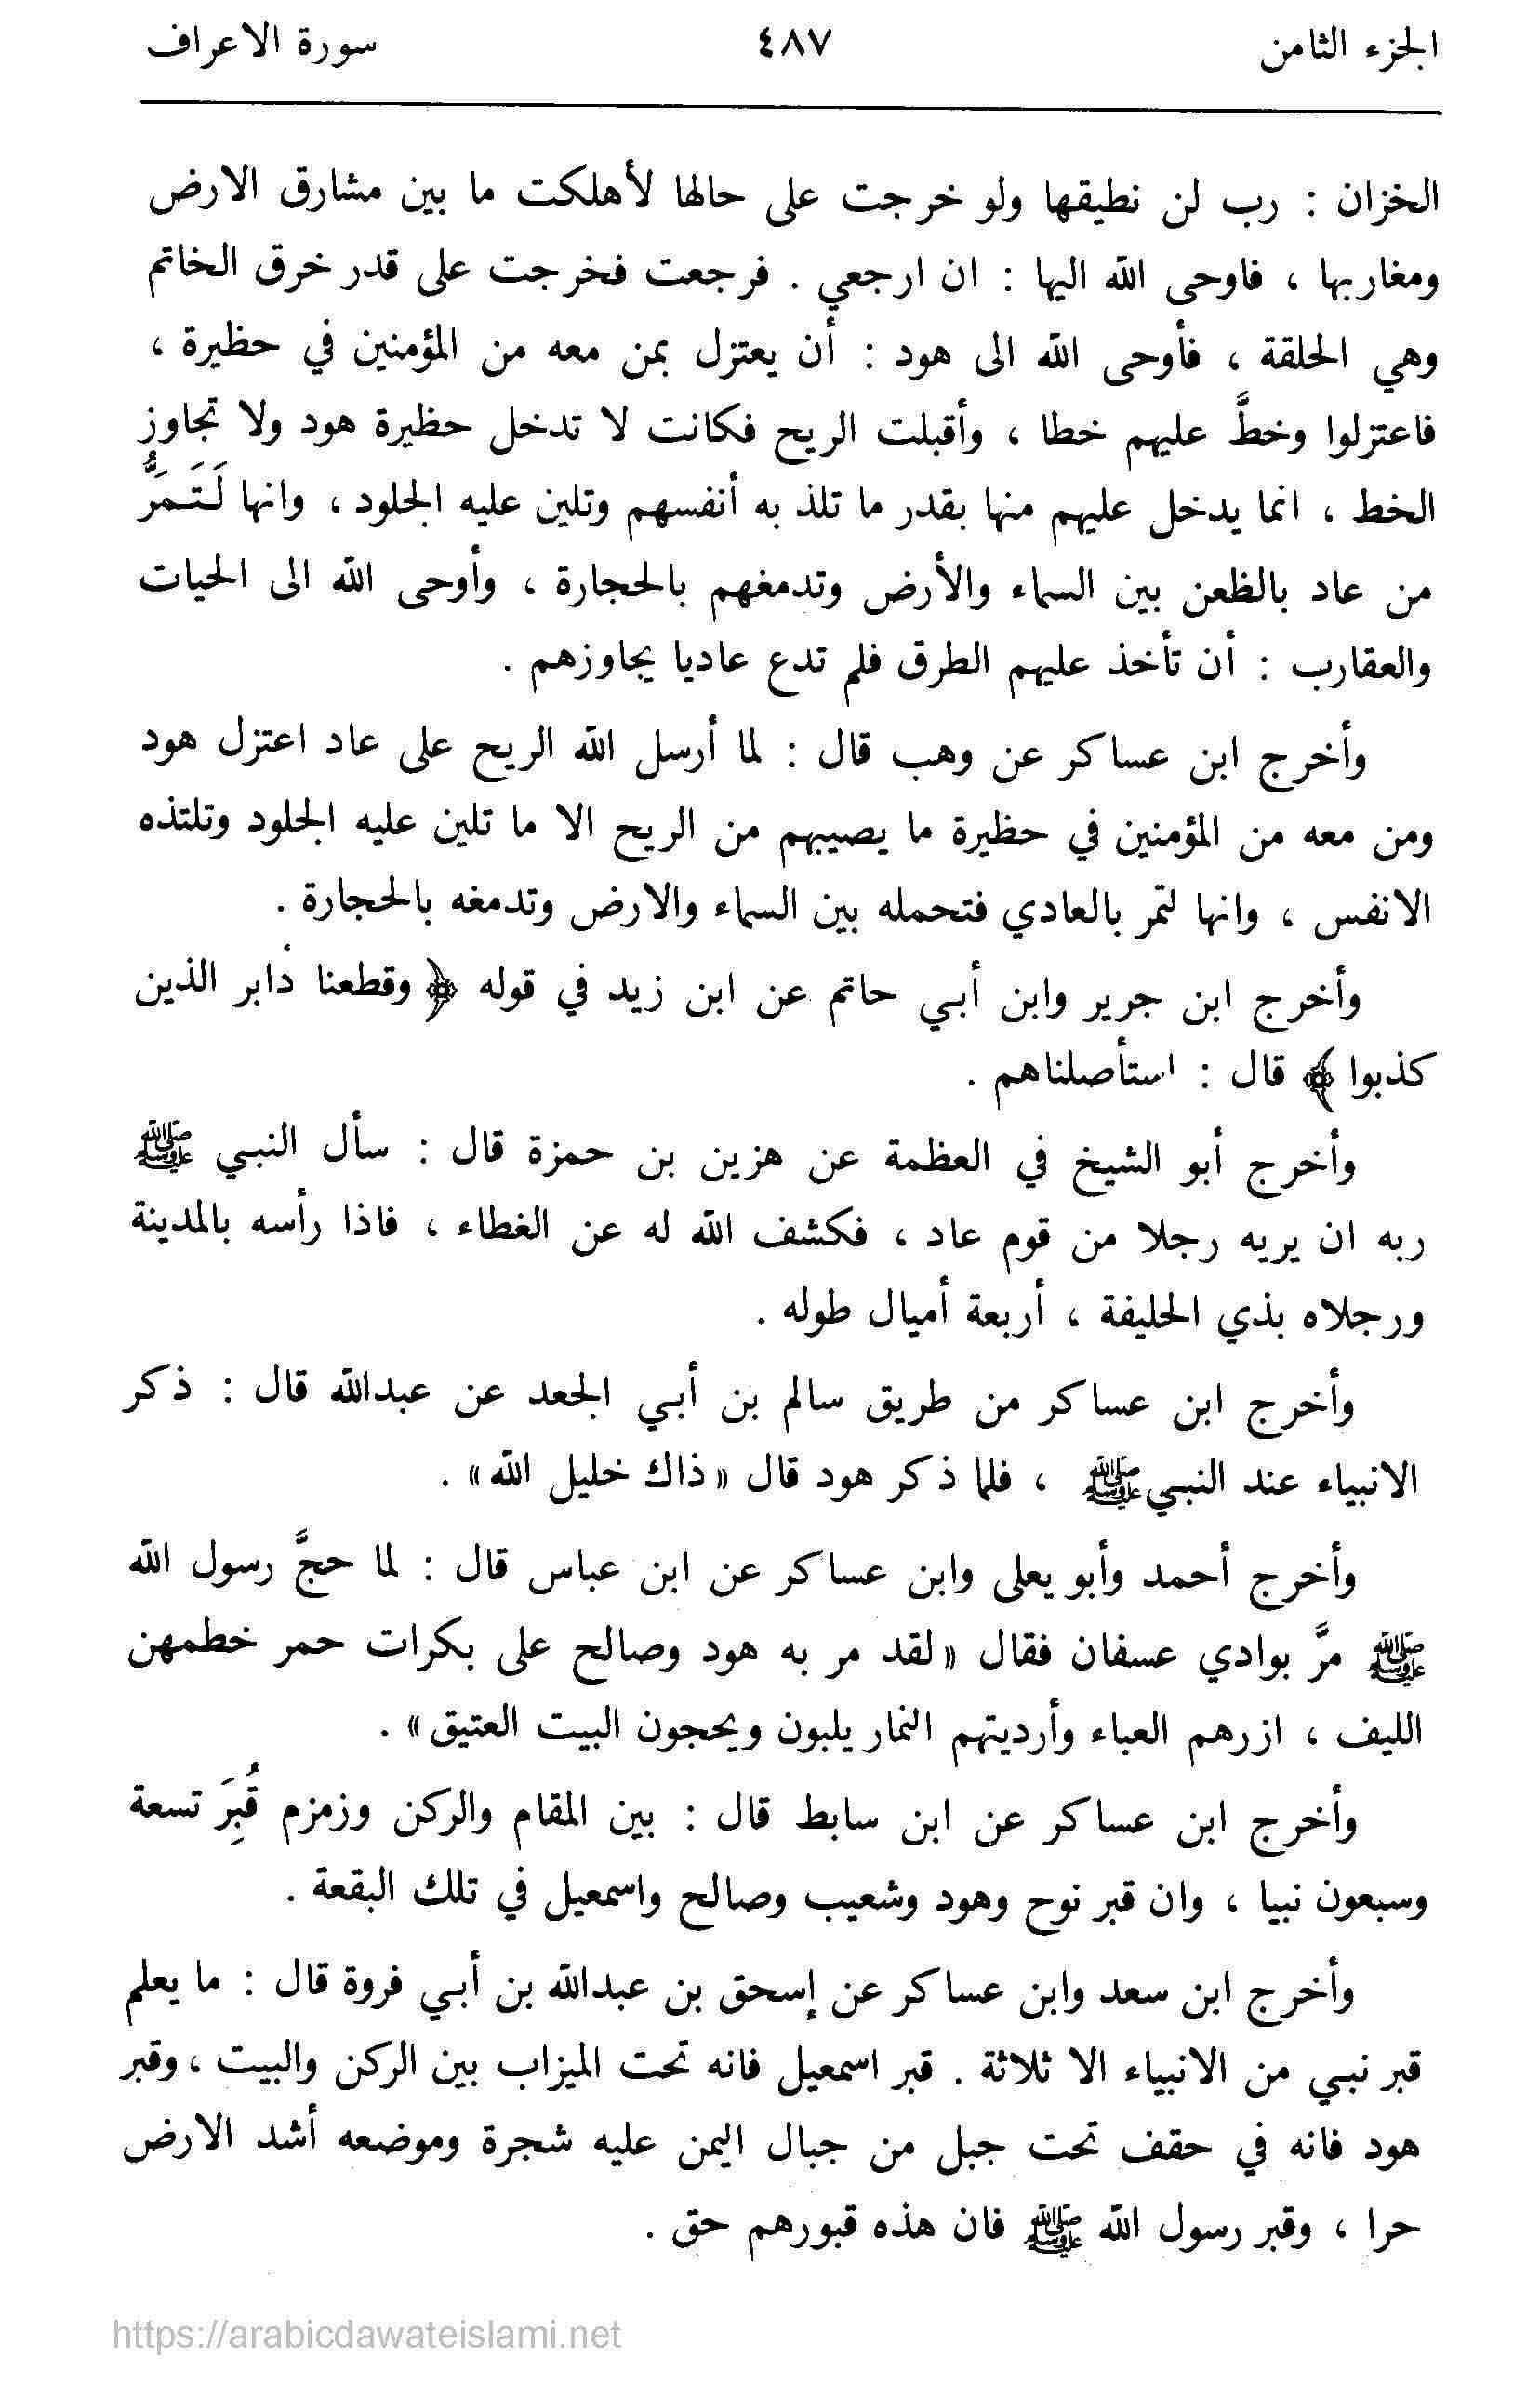 الجزء الثامن ٤٨٧ سورة الاعراف
الخزان : رب لن نطيقها ولو خرجت على حالها لأهلكت ما بين مشارق الارض
ومغاربها ، فاوحى الله اليها : ان ارجعي . فرجعت فخرجت على قدر خرق الخاتم
وهي الحلقة ، فأوحى الله الى هود : أن يعتزل بمن معه من المؤمنين في حظيرة ،
فاعتزلوا وخطَّ عليهم خطا ، وأقبلت الريح فكانت لا تدخل حظيرة هود ولا تجاوز
الخط ، انما يدخل عليهم منها بقدر ما تلذ به أنفسهم وتلين عليه الجلود ، وانها لَتَمَرُّ
من عاد بالظعن بين السماء والأرض وتدمغهم بالحجارة ، وأوحى الله الى الحيات
والعقارب : أن تأخذ عليهم الطرق فلم تدع عاديا يجاوزهم .
وأخرج ابن عساكر عن وهب قال : لما أرسل الله الريح على عاد اعتزل هود
ومن معه من المؤمنين في حظيرة ما يصيبهم من الريح الا ما تلين عليه الجلود وتلتذه
الانفس ، وانها لتمر بالعادي فتحمله بين السماء والارض وتدمغه بالحجارة .
وأخرج ابن جرير وابن أبي حاتم عن ابن زيد في قوله ﴿ وقطعنا دابر الذين
كذبوا ﴾ قال : استأصلناهم .
وأخرج أبو الشيخ في العظمة عن هزين بن حمزة قال : سأل النبي ﷺ
ربه ان يريه رجلا من قوم عاد ، فكشف الله له عن الغطاء ، فاذا رأسه بالمدينة
ورجلاه بذي الحليفة ، أربعة أميال طوله .
وأخرج ابن عساكر من طريق سالم بن أبي الجعد عن عبدالله قال : ذكر
الانبياء عند النبي ﷺ ، فلما ذكر هود قال « ذاك خليل الله » .
وأخرج أحمد وأبو يعلى وابن عساكر عن ابن عباس قال : لما حجَّ رسول الله
ﷺ مرَّ بوادي عسفان فقال « لقد مر به هود وصالح على بكرات حمر خطمهن
الليف ، ازرهم العباء وأرديتهم النمار يلبون ويحجون البيت العتيق » .
وأخرج ابن عساكر عن ابن سابط قال : بين المقام والركن وزمزم قُبِرَ تسعة
وسبعون نبيا ، وان قبر نوح وهود وشعيب وصالح واسمعيل في تلك البقعة .
وأخرج ابن سعد وابن عساكر عن إسحق بن عبدالله بن أبي فروة قال : ما يعلم
قبر نبي من الانبياء الا ثلاثة . قبر اسمعيل فانه تحت الميزاب بين الركن والبيت ، وقبر
هود فانه في حقف تحت جبل من جبال اليمن عليه شجرة وموضعه أشد الارض
حرا ، وقبر رسول الله ﷺ فان هذه قبورهم حق .
https://arabicdawateislami.net